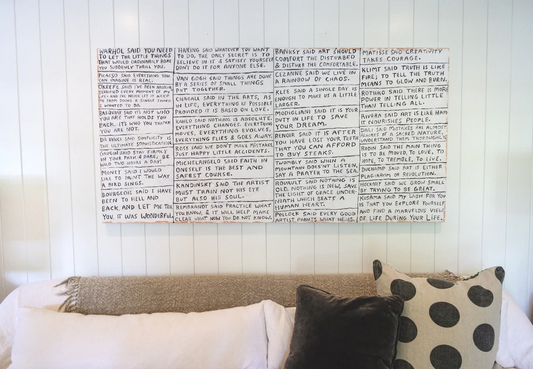 WARHOL SAID YOU NEED
TO LET THE LITTLE THINGS
THAT WOULD ORDINARILY BORE
YOU SUDDENLY THRILL YOU.
PICASSO SAID EVERYTHING YOU
CAN IMAGINE IS REAL.
O'KEEFE SAID I'VE BEEN
TERRIFIED EVERY MOMENT OF MY
LIFE AND I'VE NEVER LET IT KEEP
ME FROM DOING A SINGLE THING
I WANTED TO DO.
BASQUIAT SAID IT'S NOT WHO
YOU ARE THAT HOLDS YOU
BACK, IT'S WHO YOU THINK
YOU ARE NOT.
DA VINCI SAID SIMPLICITY IS
THE ULTIMATE SOPHISTICATION.
MONET SAID I WOULD
LIKE TO PAINT THE WAY
A BIRD SINGS.
BOURGEOIS SAID I HAVE
BEEN TO HELL AND
BACK, AND LET ME TELL
YOU, IT WAS WONDERFUL.
HARING SAID WHATEVER YOU WANT
TO DO, THE ONLY SECRET IS TO
BELIEVE IN IT & SATISFY YOURSELF.
DON'T DO IT FOR ANYONE ELSE.
VAN GOGH SAID THINGS ARE DONE
BY A SERIES OF SMALL THINGS
PUT TOGETHER.
CHAGALL SAID IN THE ARTS, AS
IN LIFE, EVERYTHING IS POSSIBLE
PROVIDED IT IS BASED ON LOVE.
KAHLO SAID NOTHING IS ABSOLUTE.
EVERYTHING CHANGES, EVERYTHING
MOVES, EVERYTHING EVOLVES,
EVERYTHING FLIES & GOES AWAY.
ROSS SAID WE DON'T MAKE MISTAKES
JUST HAPPY LITTLE ACCIDENTS.
MICHELANGELO SAID FAITH IN
ONESELF IS THE BEST AND
SAFEST COURSE.
KANDINSKY SAID THE ARTIST
MUST TRAIN NOT HIS EYE
BUT ALSO HIS SOUL.
REMBRANDT SAID PRACTICE WHAT
YOU KNOW, & IT WILL HELP MAKE
CLEAR WHAT NOW YOU DO NOT KNOW.
BANKSY SAID ART SHOULD
COMFORT THE DISTURBED
& DISTURB THE COMFORTABLE.
CEZANNE SAID WE LIVE IN
A RAINBOW OF CHAOS.
KLEE SAID A SINGLE DAY IS
ENOUGH TO MAKE US A LITTLE
LARGER.
MODIGLIANI SAID IT IS YOUR
DUTY IN LIFE TO SAVE
YOUR DREAM.
RENOIR SAID IT IS AFTER
YOU HAVE LOST YOUR TEETH
THAT YOU CAN AFFORD
TO BUY STEAKS.
TWOMBLY SAID WHEN A
MOUNTAIN DOESN'T LISTEN,
SAY A PRAYER TO THE SEA.
SAID NOTHING IS
OLD, NOTHING IS NEW, SAVE
THE LIGHT OF GRACE UNDER-
NEATH WHICH BEATS A
HUMAN HEART.
POLLOCK SAID EVERY GOOD
ARTIST PAINTS WHAT HE IS.
MATISSE SAID CREATIVITY
TAKES COURAGE.
KLIMT SAID TRUTH IS LIKE
FIRE; TO TELL THE TRUTH
MEANS TO GLOW AND BURN.
ROTHKO SAID THERE IS MORE
POWER IN TELLING LITTLE
THAN TELLING ALL.
RIVERA SAID ART IS LIKE HAM
IT NOURISHES PEOPLE.
DALI SAID MISTAKES ARE ALMOST
ALWAYS OF A SACRED NATURE,
UNDERSTAND THEM THOROUGHLY.
RODIN SAID THE MAIN THING
IS TO BE MOVED, TO LOVE, TO
HOPE, TO TREMBLE, TO LIVE.
SAID ART IS EITHER
PLAGIARISM OR REVOLUTION.
HOCKNEY SAID WE GROW SMALL
BY TRYING TO BE GREAT.
KUSAMA SAID MY WISH FOR YOU
IS THAT YOU EXPLORE YOURSELF
AND FIND A MARVELOUS VIEW
OF LIFE DURING YOUR LIFE.